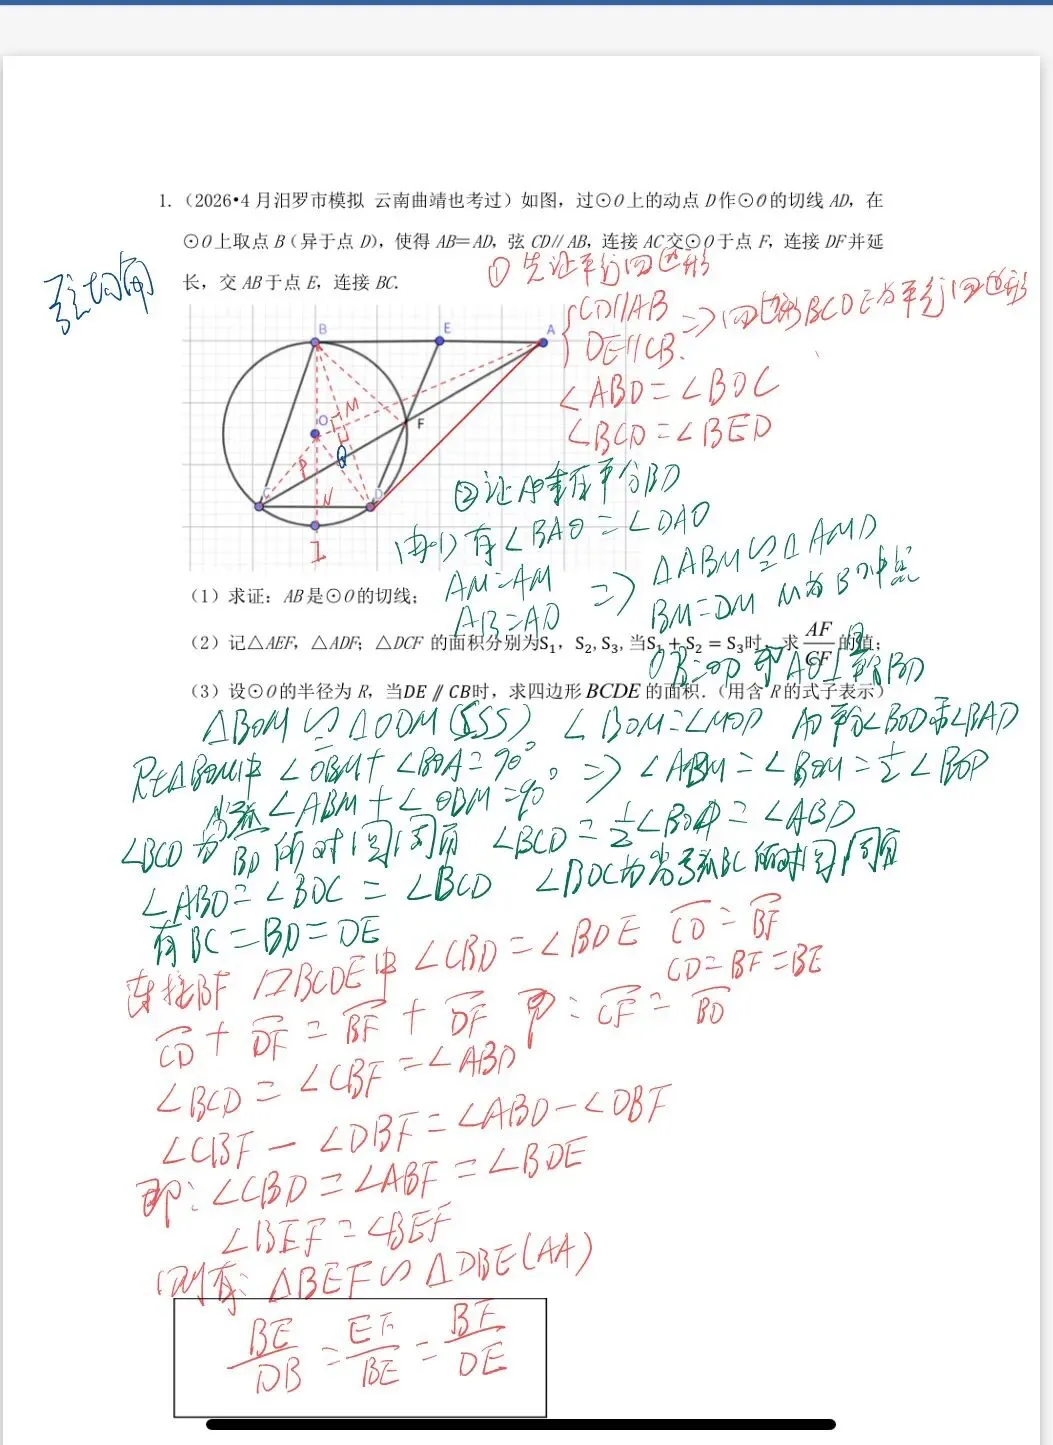 1.（2026•4月汨罗市模拟 云南曲靖也考过）如图，过⊙O上的动点D作⊙O的切线AD，在
⊙O上取点B（异于点D），使得AB＝AD，弦CD∥AB，连接AC交⊙O于点F，连接DF并延
长，交AB于点E，连接BC.
弦切角
① 先证平行四边形
{CD//AB
DE//CB. => 四边形BCDE为平行四边形
∠ABD=∠BDC
∠BCD=∠BED
B E A
M
O F
Q
P
C N D
I
②证AO垂直平分BD
由(1)有∠BAO=∠DAO
AM=AM
AB=AD
=> △ABM≌△AMD
BM=DM M为BD中点
（1）求证：AB是⊙O的切线；
（2）记△AEF，△ADF；△DCF 的面积分别为S₁，S₂,S₃,当S₁+S₂=S₃时，求AF/CF的值；
OB=OD 即AO⊥BD
（3）设⊙O的半径为R，当DE∥CB时，求四边形BCDE的面积.（用含R的式子表示）
△BOM≌△ODM(SSS) ∠BOM=∠MOD AO平分∠BOD和∠BAD
Rt△BOM中 ∠OBM+∠BOA=90° => ∠ABM=∠BOM=½∠BOD
∠ABM+∠OBM=90°
∠BCD为劣弧BD所对圆周角 ∠BCD=½∠BOD=∠ABD
∠ABD=∠BDC=∠BCD ∠BDC为劣弧BC所对圆周角
有BC=BD=DE
连接BF ▱BCDE中∠CBD=∠BDE C͡D=B͡F
CD=BF=BE
C͡D+D͡F=B͡F+D͡F 即：C͡F=B͡D
∠BCD=∠CBF=∠ABD
∠CBF-∠DBF=∠ABD-∠DBF
即：∠CBD=∠ABF=∠BDE
∠BEF=∠BEF
则有：△BEF∽△DBE(AA)
BE/DB=EF/BE=BF/DE